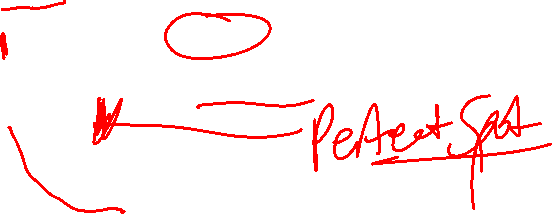 Perfect Spot